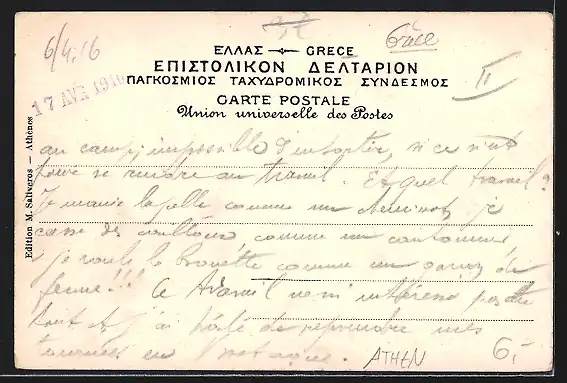 6/4.16
Grèce
ΕΛΛΑΣ GRECE
ΕΠΙΣΤΟΛΙΚΟΝ ΔΕΛΤΑΡΙΟΝ
ΠΑΓΚΟΣΜΙΟΣ ΤΑΧΥΔΡΟΜΙΚΟΣ ΣΥΝΔΕΣΜΟΣ
CARTE POSTALE
Union universelle des Postes
II
17 AVR 1916
Edition M. Saliveros — Athènes
au camp; impossible d'en sortir, si ce n'est
pour se rendre au travail. Et quel travail?
Je manie la pelle comme un cheminot, je
casse des cailloux comme un cantonnier
je roule la brouette comme un garçon de
ferme!!! Ce travail ne m'intéresse pas du
tout et j'ai hâte de reprendre mes
tournées en
ATHEN
6,-